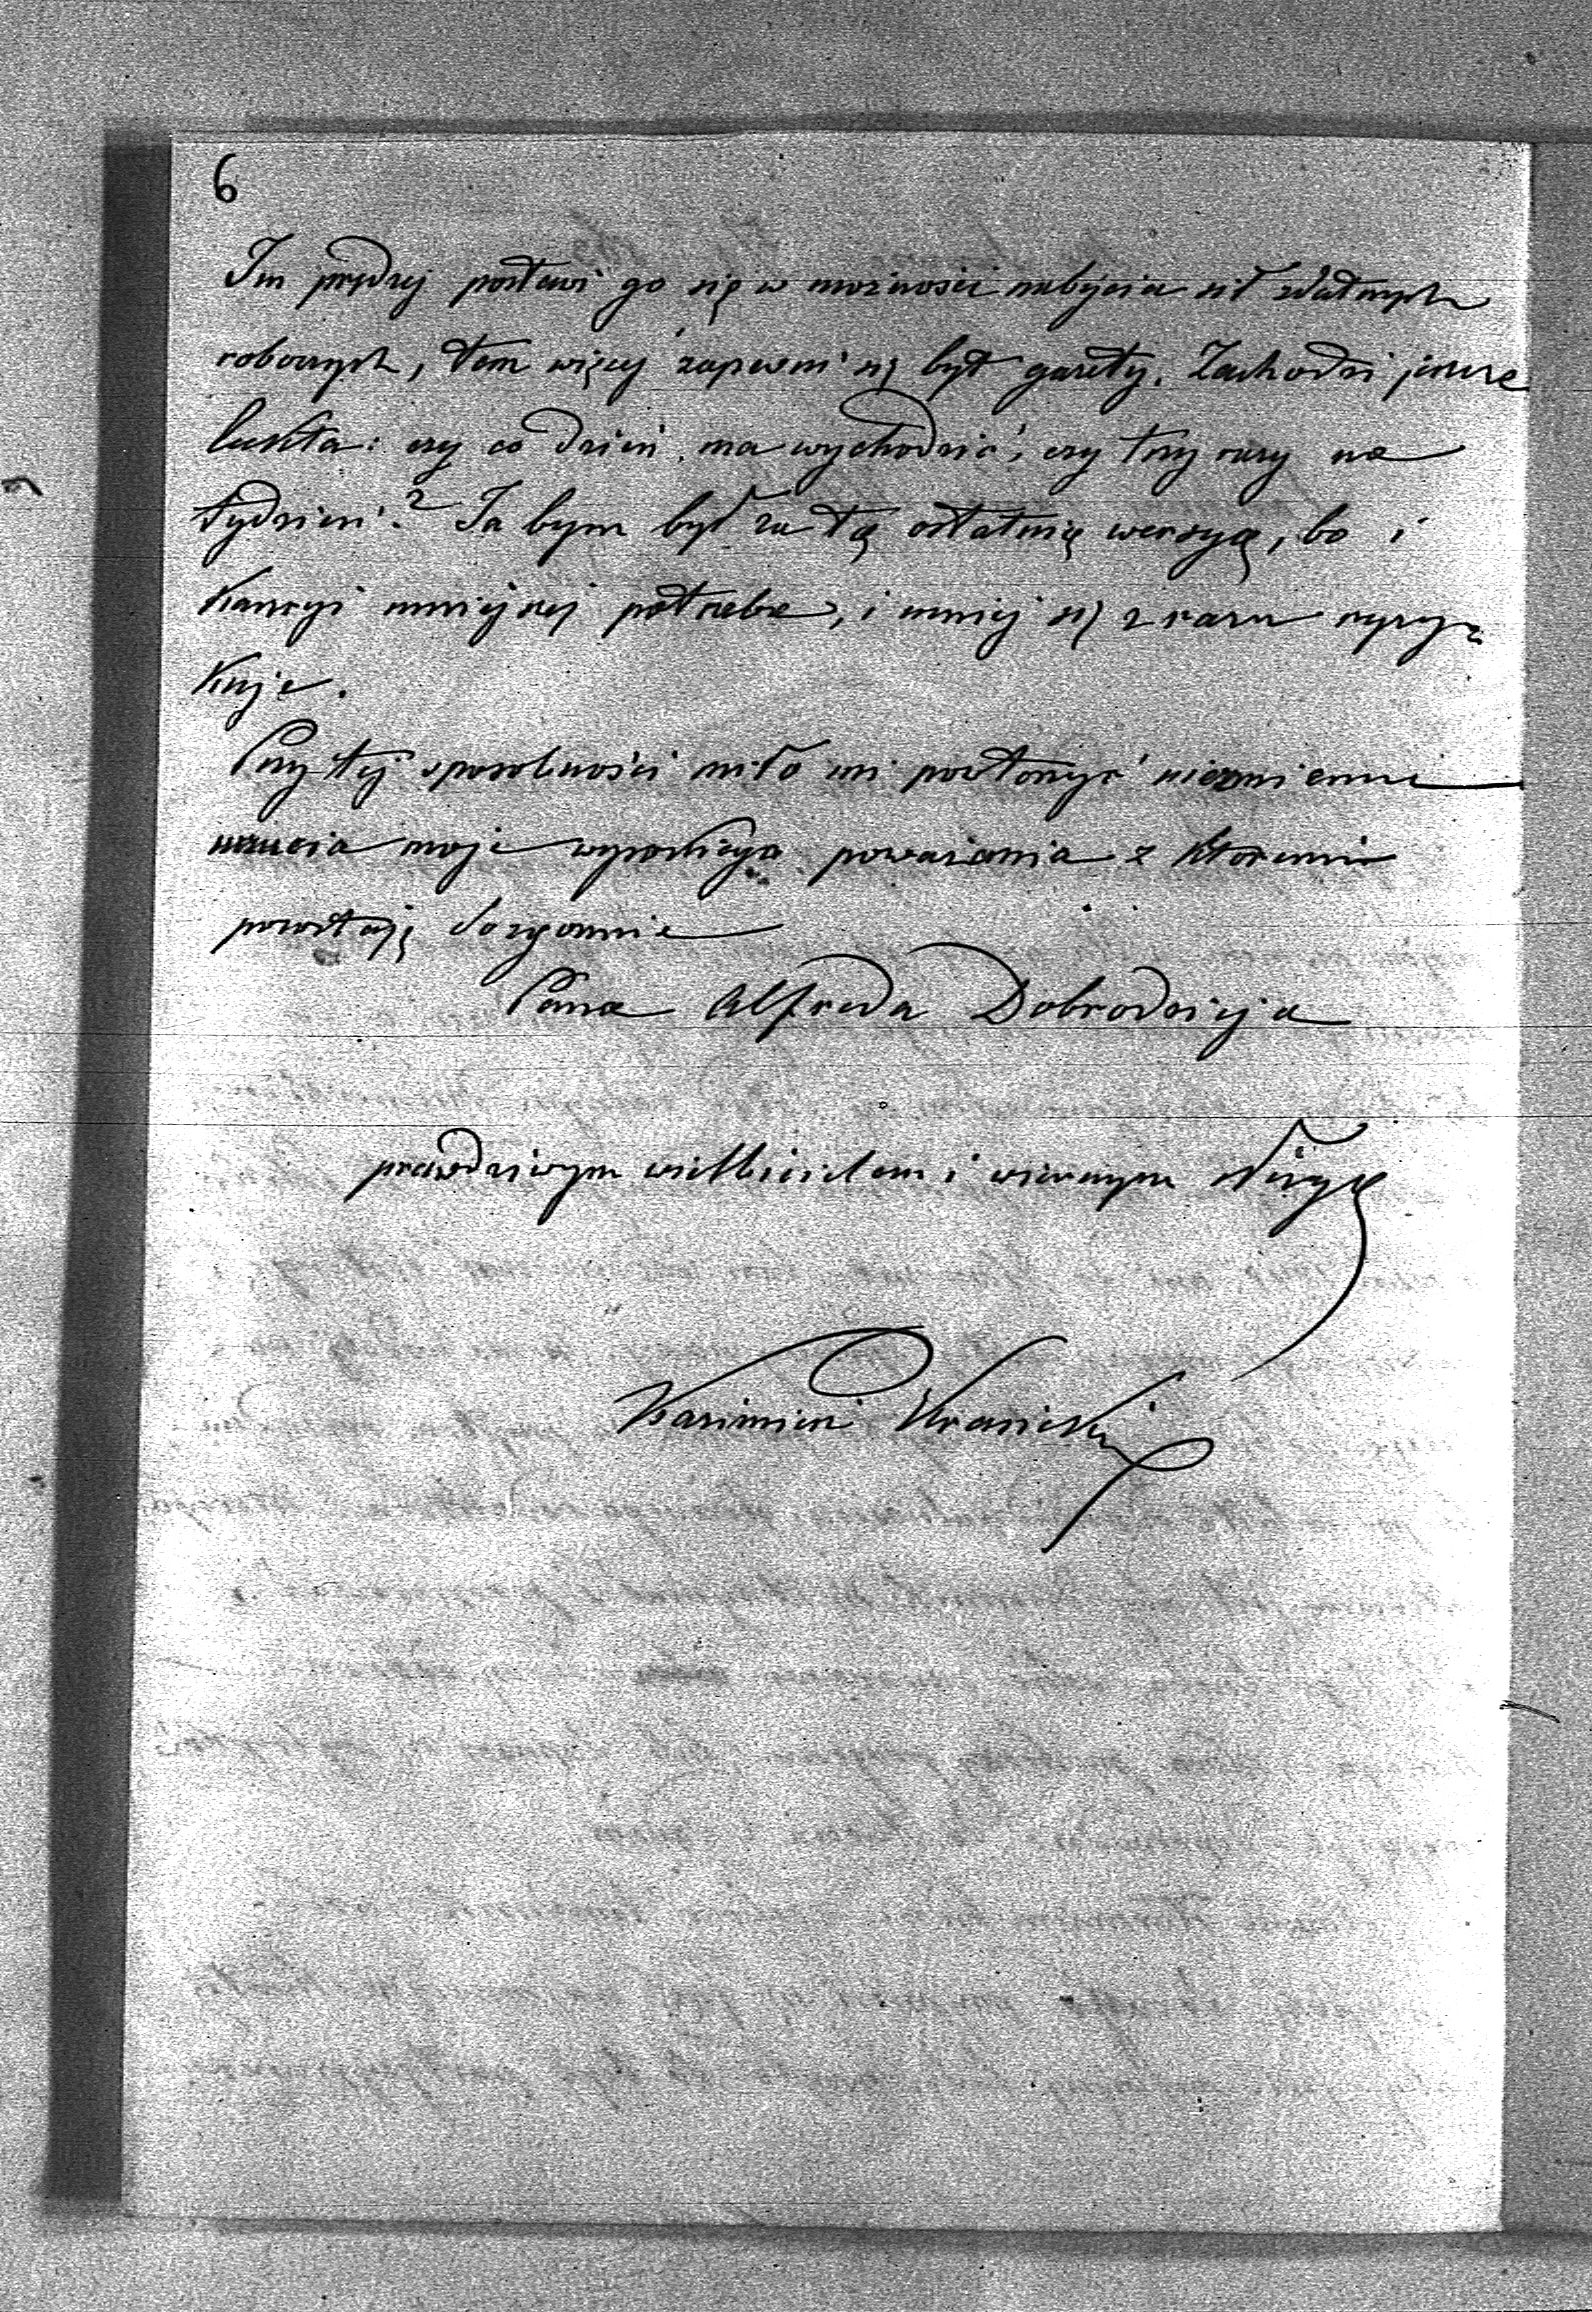 6
Im prędzej postawi go się w możności nabycia sił zdatnych
roboczych, tem więcej zapewni się byt gazety. Zachodzi jeszcze
kwestia: czy co dzień ma wychodzić, czy trzy razy na
tydzień? Ja bym był za tą ostatnią wersyą, bo i
kaucyi mniejszej potrzeba, i mniej się z razu ryzy-
kuje.
Przy tej sposobności miło mi powtórzyć niezmienne
uczucia moje wysokiego poważania z któremi
pozostaję dozgonnie
Pana Alfreda Dobrodzieja
prawdziwym wielbicielem i wiernym sługą
Kazimierz Krasicki